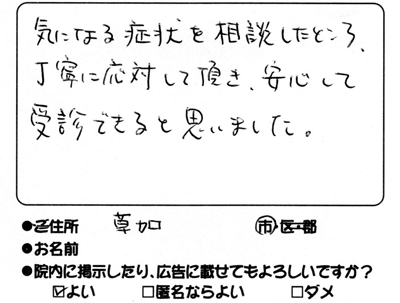 気になる症状を相談したところ、
丁寧に応対して頂き、安心して
受診できると思いました。
●ご住所 草加 市・区・郡
●お名前
●院内に掲示したり、広告に載せてもよろしいですか?
☑よい □匿名ならよい □ダメ